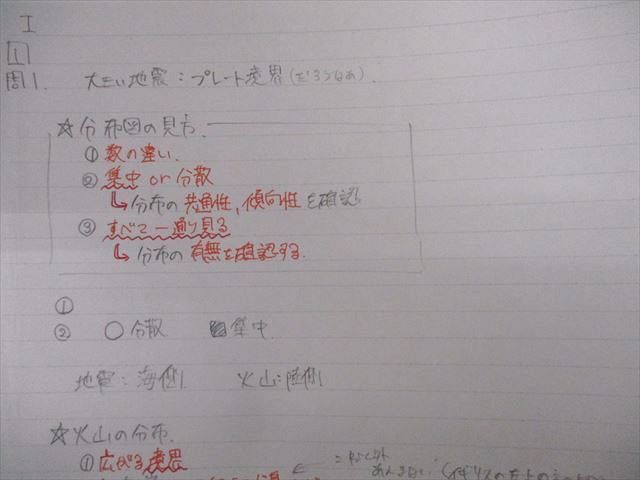 I
[1]
問1. 大きい地震：プレート境界(だろうなあ).
☆分布図の見方.
① 数の違い.
② 集中 or 分散
↳ 分布の共通性、傾向性を確認
③ すべて一通り見る
↳ 分布の有無を確認する.
①
② ○分散 集中.
地震：海側. 火山：陸側
☆火山の分布.
① 広がる境界